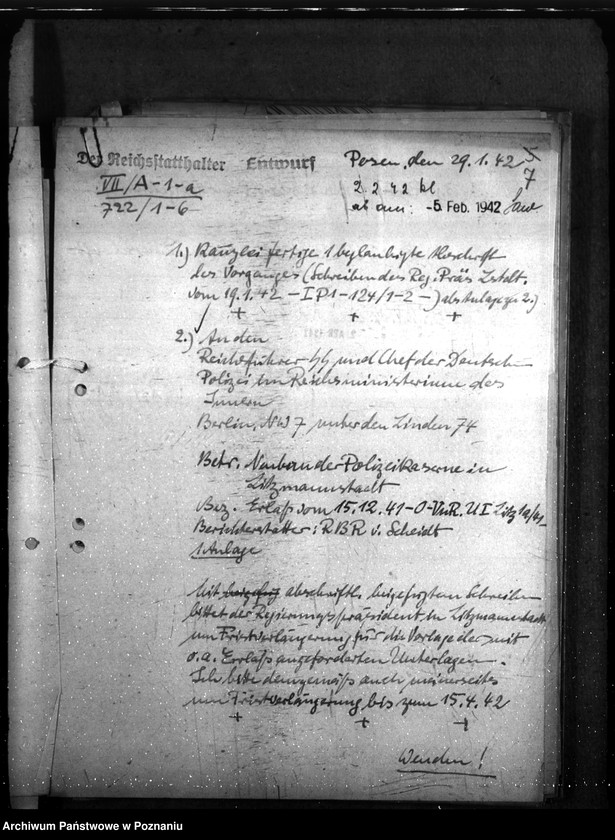 Der Reichsstatthalter Entwurf Posen, den 29.1.42
VII/A-1-a
722/1-6
2 2 42 kl
ab am: -5. Feb. 1942
1.) Kanzlei fertige 1 beglaubigte Abschrift
des Vorganges (Schreiben des Reg. Präs Lztdt.
vom 19.1.42 - I P1-124/1-2 -) als Anlage zu 2.)
2.) An den
Reichsführer SS und Chef der Deutschen
Polizei im Reichsministerium des
Innern
Berlin, NW 7 unter den Linden 74
Betr. Neubau der Polizeikaserne in
Litzmannstadt
Bez. Erlaß vom 15.12.41-O-VuR. U I Litz
Berichterstatter: RBR v. Scheidt
1 Anlage
Mit abschriftl. beigefügtem Schreiben
bittet der Regierungspräsident in Litzmannstadt
um Fristverlängerung für die Vorlage der mit
o.a. Erlaß angeforderten Unterlagen.
Ich bitte demgemäß auch meinerseits
um Fristverlängerung bis zum 15.4.42
Wenden!
Archiwum Państwowe w Poznaniu